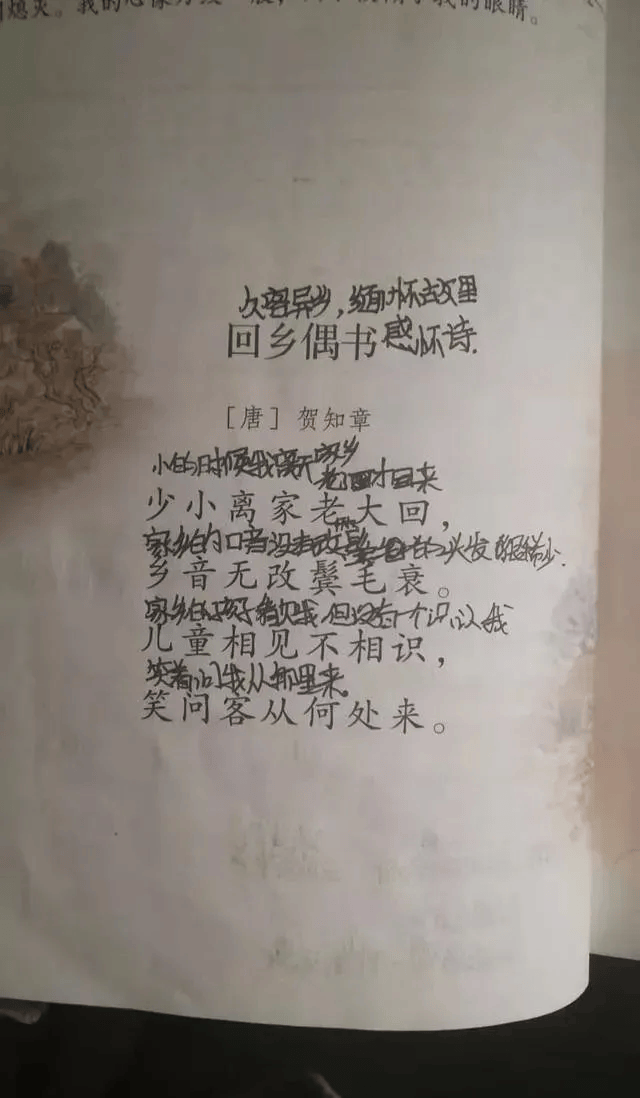 熄灭。我的心像刀绞一般，
我的眼睛。
久客异乡，缅怀故里
回乡偶书 感怀诗.
［唐］贺知章
小的时候我离开家乡
老了才回来
少小离家老大回，
家乡的口音没有改 头发 稀少.
乡音无改鬓毛衰。
家乡的孩子看见我，但没有一个认识我
儿童相见不相识，
笑着问我从那里来。
笑问客从何处来。